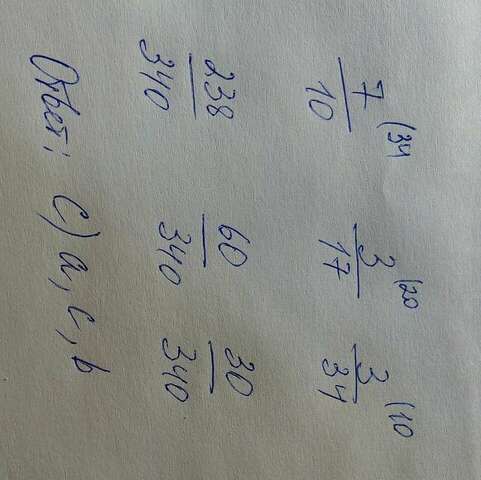 7/10 (34 3/17 (20 3/34 (10
238/340 60/340 30/340
Ответ: C) a, c, b